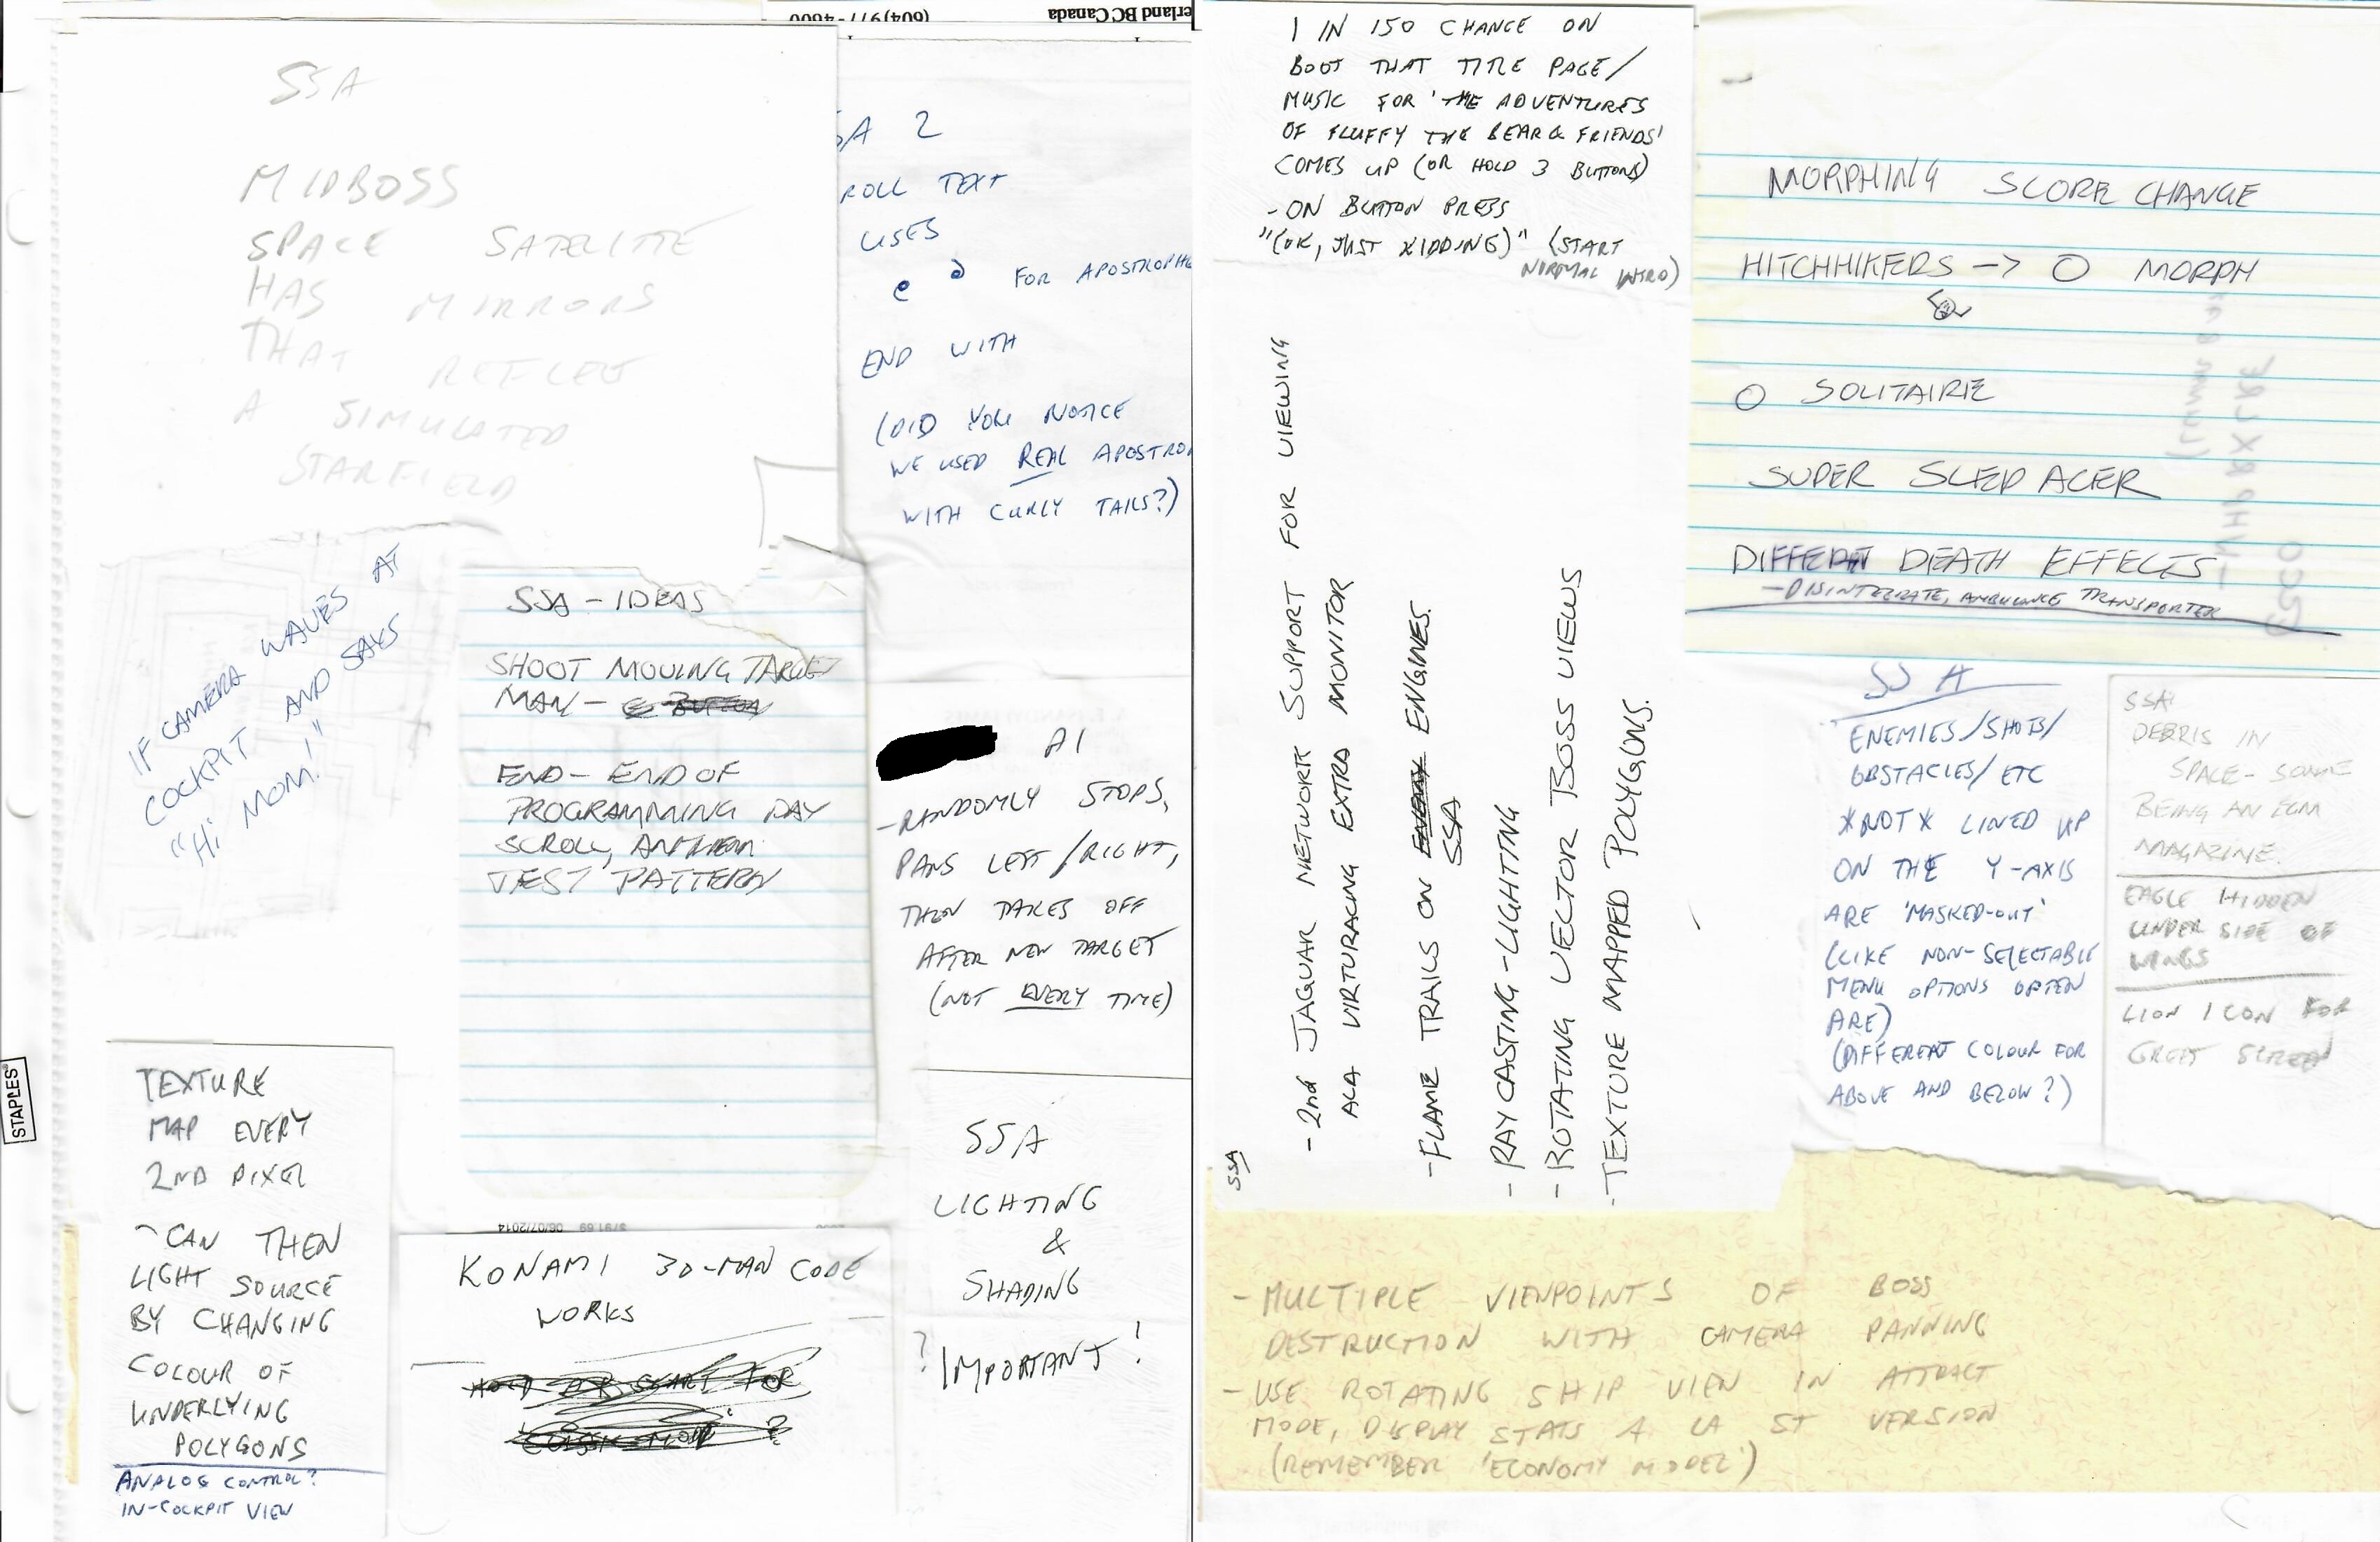 (604)977-4600
erland BC Canada
SSA
MIDBOSS
SPACE SATELITTE
HAS MIRRORS
THAT REFLECT
A SIMULATED
STARFIELD
SA 2
ROLL TEXT
USES
FOR APOSTROPHE
END WITH
(DID YOU NOTICE
WE USED REAL APOSTRO
WITH CURLY TAILS?)
IF CAMERA WAVES AT
COCKPIT AND SAYS
"HI MOM!"
SSA - IDEAS
SHOOT MOVING TARGET
MAN -
END - END OF
PROGRAMMING DAY
SCROLL, ANTHEM
TEST PATTERN
AI
- RANDOMLY STOPS,
PANS LEFT/RIGHT,
THEN TAKES OFF
AFTER NEW TARGET
(NOT EVERY TIME)
STAPLES
TEXTURE
MAP EVERY
2ND PIXEL
- CAN THEN
LIGHT SOURCE
BY CHANGING
COLOUR OF
UNDERLYING
POLYGONS
ANALOG CONTROL?
IN-COCKPIT VIEW
$791.69 06/07/2014
KONAMI 30-MAN CODE
WORKS
SSA
LIGHTING
&
SHADING
? IMPORTANT!
1 IN 150 CHANCE ON
BOOT THAT TITLE PAGE/
MUSIC FOR 'THE ADVENTURES
OF FLUFFY THE BEAR & FRIENDS'
COMES UP (OR HOLD 3 BUTTONS)
- ON BUTTON PRESS
"(OK, JUST KIDDING)" (START
NORMAL INTRO)
SSA
- 2nd JAGUAR NETWORK SUPPORT FOR VIEWING
ALA VIRTURACING EXTRA MONITOR
- FLAME TRAILS ON ENEMY ENGINES.
SSA
- RAY CASTING - LIGHTING
- ROTATING VECTOR BOSS VIEWS
- TEXTURE MAPPED POLYGONS.
MORPHING SCORE CHANGE
HITCHHIKERS -> O MORPH
O SOLITAIRE
SUPER SLED ACER
DIFFERENT DEATH EFFECTS
- DISINTEGRATE, AMBULANCE TRANSPORTER
SSA
ENEMIES/SHOTS/
OBSTACLES/ETC
*NOT* LINED UP
ON THE Y-AXIS
ARE 'MASKED-OUT'
(LIKE NON-SELECTABLE
MENU OPTIONS OFTEN
ARE)
(DIFFERENT COLOUR FOR
ABOVE AND BELOW?)
SSA
DEBRIS IN
SPACE - SOME
BEING AN EGM
MAGAZINE.
EAGLE HIDDEN
UNDER SIDE OF
WINGS
LION ICON FOR
SCREEN
- MULTIPLE VIEWPOINTS OF BOSS
DESTRUCTION WITH CAMERA PANNING
- USE ROTATING SHIP VIEW IN ATTRACT
MODE, DISPLAY STATS A LA ST VERSION
(REMEMBER 'ECONOMY MODEL')